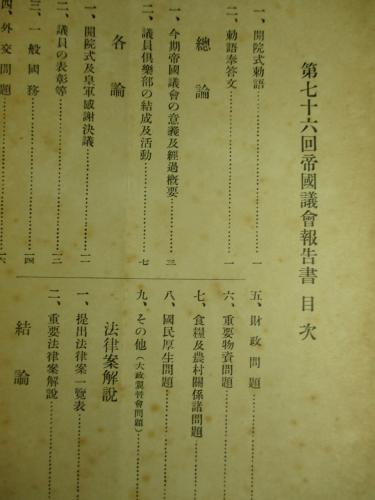 第七十六回帝國議會報告書 目次
一、開院式勅語……一
二、勅語奉答文……一
總論
一、今期帝國議會の意義及經過概要……三
二、議員倶樂部の結成及活動……七
各論
一、開院式及皇軍感謝決議……一一
二、議員の表彰等……一三
三、一般國務……一四
四、外交問題……一六
五、財政問題
六、重要物資問題
七、食糧及農村關係諸問題
八、國民厚生問題
九、その他(大政翼賛會問題)
法律案解說
一、提出法律案一覽表
二、重要法律案解說
結論